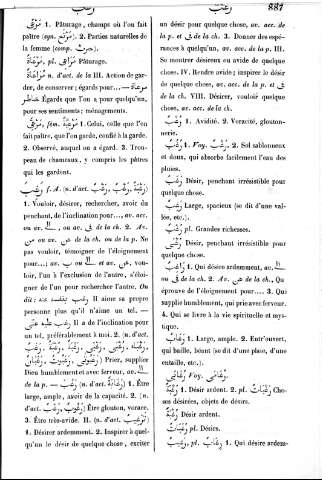 رغب
رغب
887
مَرْعًى 1. Pâturage, champs où l'on fait
paître (syn. مَرْتَع). 2. Parties naturelles de
la femme (comp. حرث).
مَرْعَاةٌ pl. مَرَاعٍ Pâturage.
مُرَاعَاةٌ n. d'act. de la III. Action de gar-
der, de conserver; égards pour... مراعاة
خاطر Égards que l'on a pour quelqu'un,
pour ses sentiments; ménagements.
مَرْعِىٌّ fém. مَرْعِيَّةٌ 1. Celui, celle que l'on
fait paître, que l'on garde, confié à la garde.
2. Observé, auquel on a égard. 3. Trou-
peau de chameaux, y compris les pâtres
qui les gardent.
رَغِبَ f. A. (n. d'act. رَغْبٌ, رُغْبٌ, رَغْبَةٌ)
1. Vouloir, désirer, rechercher, avoir du
penchant, de l'inclination pour..., av. acc.
ou av. الى, ou ac. فى de la ch. 2. Av.
عن ou av. عن de la ch. ou de la p. Ne
pas vouloir, témoigner de l'éloignement
pour...; av. ب ou الى et av. عن, vou-
loir, l'un à l'exclusion de l'autre, s'éloi-
gner de l'un pour rechercher l'autre. On
dit: رغب بنفسه عنه Il aime sa propre
personne plus qu'il n'aime un tel. —
رغب به عن Il a de l'inclination pour
un tel, préférablement à moi. 2. (n. d'act.
Prier, supplier
Dieu humblement et avec ferveur, av. الى
de la p. — رَغُبَ (n. d'act. رُغْبٌ) 1. Être
large, ample, avoir de la capacité. 2. (n.
d'act. رُغْبٌ, رُغُبٌ) Être glouton, vorace.
3. Être très-avide. II. (n. d'act. تَرْغِيبٌ)
1. Désirer ardemment. 2. Inspirer à quel-
qu'un le désir de quelque chose, exciter
un désir pour quelque chose, av. acc. de
la p. et فى de la ch. 3. Donner des espé-
rances à quelqu'un, av. acc. de la p. III.
Se montrer désireux ou avide de quelque
chose. IV. Rendre avide; inspirer le désir
de quelque chose, av. acc. de la p. et فى
de la ch. VIII. Désirer, vouloir quelque
chose, av. acc. de la ch.
رُغْبٌ 1. Avidité. 2. Voracité, glouton-
nerie.
رُغُبٌ 1. Voy. رُغْبٌ. 2. Sol sablonneux
et doux, qui absorbe facilement l'eau des
pluies.
رَغَبٌ Désir, penchant irrésistible pour
quelque chose.
رَغِبٌ Large, spacieux (se dit d'une val-
lée, etc.).
رُغُبٌ pl. Grandes richesses.
رُغْبَى Désir, penchant irrésistible pour
quelque chose.
رَاغِبٌ 1. Qui désire ardemment, av. الى
ou فى de la ch. 2. Av. عن de la ch., Qui
éprouve de l'éloignement pour.... 3. Qui
supplie humblement, qui prie avec ferveur.
4. Qui se livre à la vie spirituelle et mys-
tique.
رَغَابٌ 1. Large, ample. 2. Entr'ouvert,
qui baille, béant (se dit d'une place, d'une
entaille, etc.).
رُغَابَى Voy. رُغْبَى.
رَغْبَةٌ 1. Désir ardent. 2. pl. رَغَبَاتٌ Cho-
ses désirées, objets de désirs.
رُغْبَةٌ Désir ardent.
رَغَبَاتٌ pl. Désirs.
رَغِيبٌ, pl. رِغَابٌ 1. Qui désire ardem-